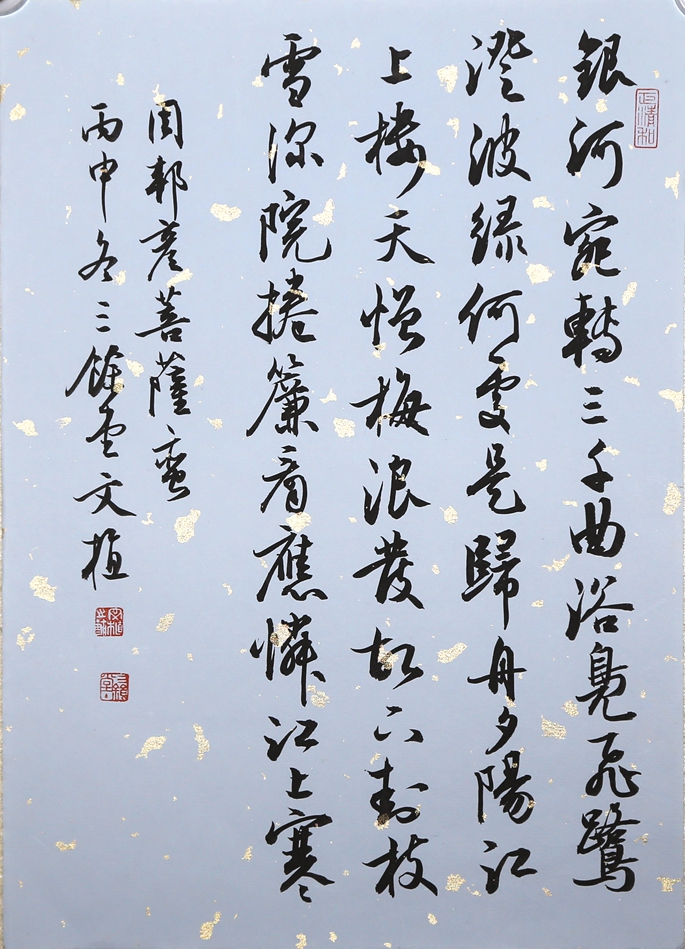 銀河宛轉三千曲浴鳧飛鷺
澄波綠何處是歸舟夕陽江
上樓天憎梅浪發故下封枝
雪深院捲簾看應憐江上寒
周邦彥菩薩蠻
丙申冬三餘堂文植